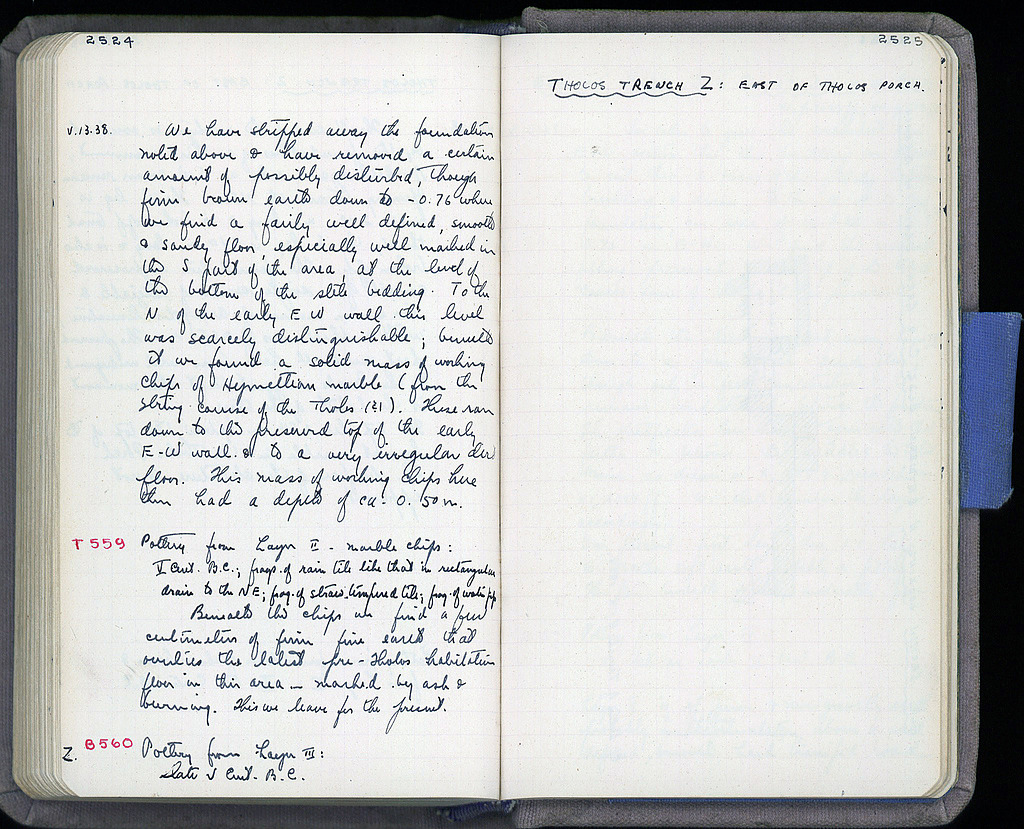 2524
V.13.38.
We have stripped away the foundation
noted above & have removed a certain
amount of possibly disturbed, though
firm brown earth down to -0.76 where
we find a fairly well defined, smooth
& sandy floor, especially well marked in
the S part of the area, at the level of
the bottom of the stele bedding. To the
N of the early E-W wall this level
was scarcely distinguishable; beneath
it we found a solid mass of working
chips of Hymettian marble (from the
string course of the Tholos (?)). These ran
down to the preserved top of the early
E-W wall & to a very irregular
floor. This mass of working chips here
then had a depth of ca. 0.50 m.
T 559
Pottery from Layer II - marble chips:
V Cent. B.C.; frags. of rain tile like that in rectangular
drain to the NE; frag. of straw-tempered tile; frag. of water pipe
Beneath the chips we find a few
centimeters of firm fine earth that
overlies the latest pre-Tholos habitation
floor in this area - marked by ash &
burning. This we leave for the present.
Z. B560
Pottery from Layer III:
Late V Cent. B.C.
2525
THOLOS TRENCH Z: EAST OF THOLOS PORCH.